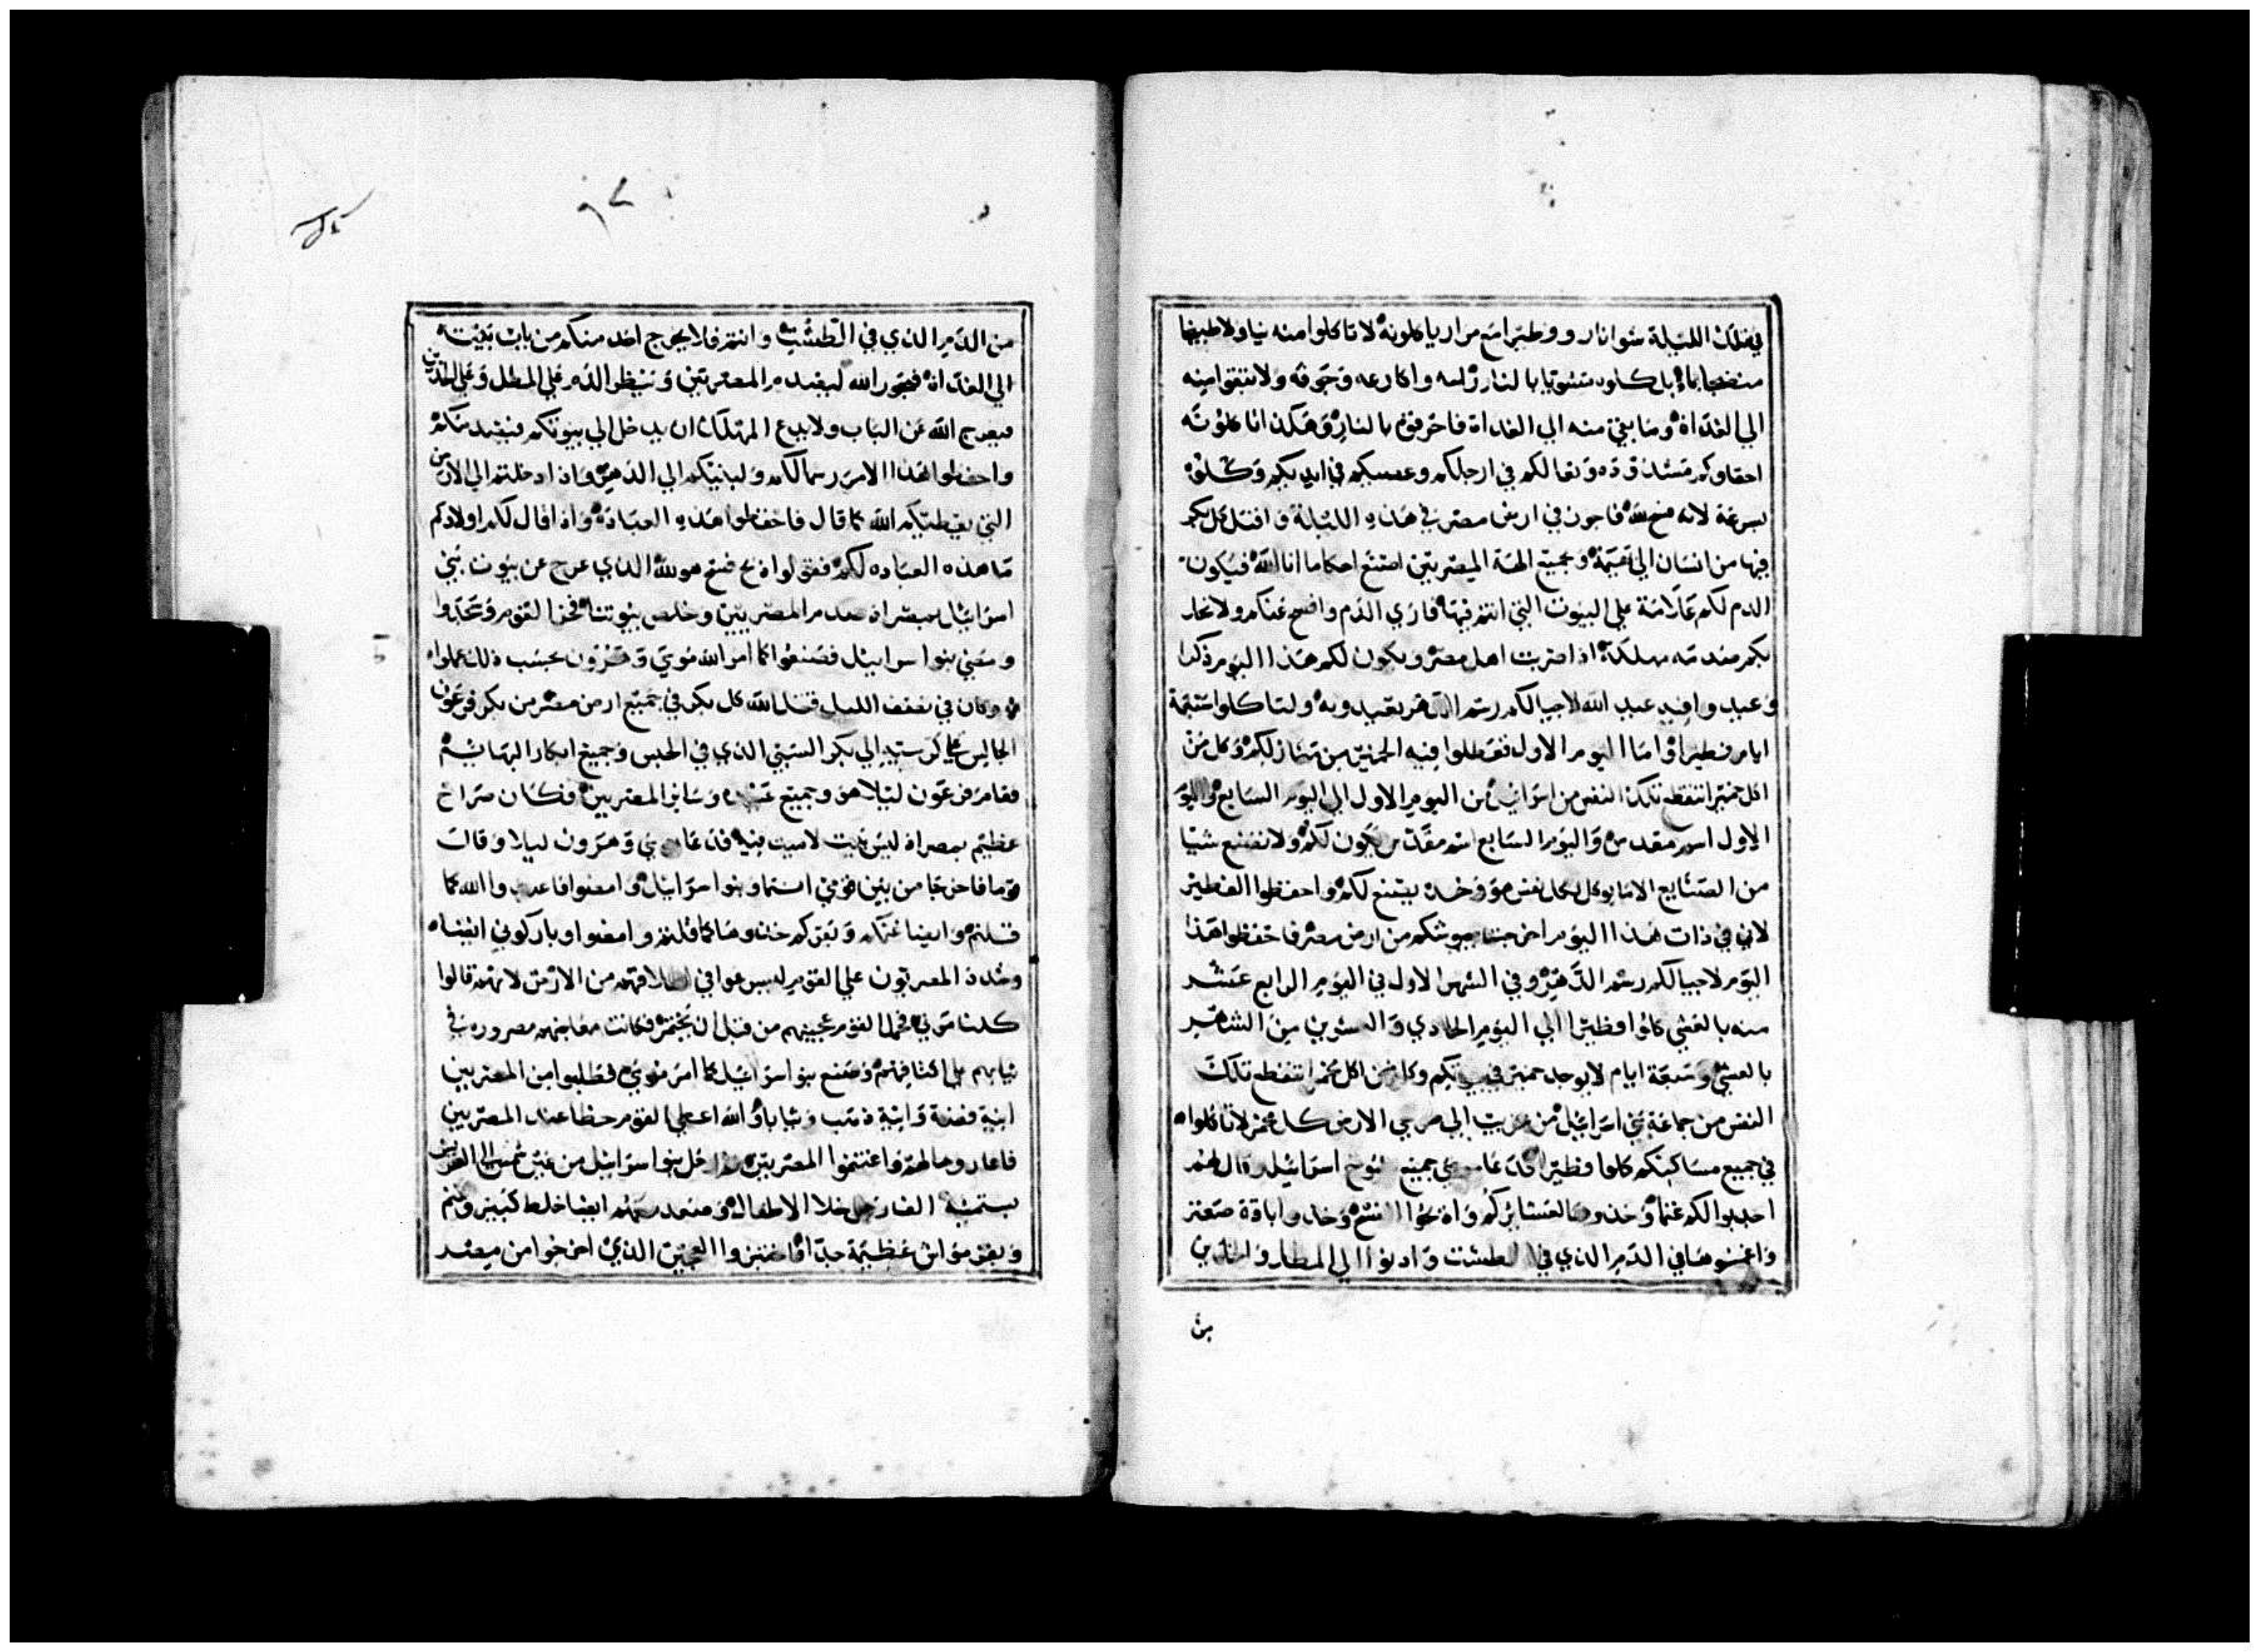 في تلك الليلة شوا نار وفطيرا مع مرار ياكلونه لا تاكلوا منه نيا ولا طبيخا
منضجا بماء بل كلوه مشويا بالنار راسه واكارعه وجوفه ولا تبقوا منه
الي الغداة وما بقي منه الي الغداة فاحرقوه بالنار وهكذا تاكلونه
احقاوكم مشدودة ونعالكم في ارجلكم وعصيكم في ايديكم وكلوه
بسرعة لانه فسح لله فاجوز في ارض مصر في هذه الليلة واقتل كل بكر
فيها من انسان الي بهيمة وبجميع الهة المصريين اصنع احكاما انا الله فيكون
الدم لكم علامة علي البيوت التي انتم فيها فاري الدم وافسح عنكم ولا تحل
بكم صدمه مهلكة اذا ضربت اهل مصر ويكون لكم هذا اليوم ذكرا
وعيد وافيه عيد الله لاجيالكم رسم الدهر تعيدوه ولتاكلوا سبعة
ايام فطيرا واما اليوم الاول فعطلوا فيه الخمير من منازلكم وكل من
اكل خميرا تنقطع تلك النفس من اسرائيل من اليوم الاول الي اليوم السابع واليوم
الاول اسم مقدس واليوم السابع اسم مقدس يكون لكم ولا تصنع شيا
من الصنايع الا ما يوكل لكل نفس هو وحده يصنع لكم واحفظوا الفطير
لاني في ذات هذا اليوم اخرجت جيوشكم من ارض مصر فاحفظوا هذا
اليوم لاجيالكم رسم الدهر وفي الشهر الاول في اليوم الرابع عشر
منه بالعشي كلوا فطيرا الي اليوم الحادي والعشرين من الشهر
بالعشي وسبعة ايام لا يوجد خمير في بيوتكم وكل من اكل مختمرا تنقطع تلك
النفس من جماعة بني اسرائيل من غريب الي صريحي الارض كل مختمر لا تاكلوا
في جميع مساكنكم كلوا فطيرا فدعا موسي جميع شيوخ اسرائيل وقال لهم
اجذبوا لكم غنما وخذوها لعشايركم واذبحوا الفسح وخذوا باقة صعتر
واغمسوها في الدم الذي في الطشت وادنوا الي المطل والخدين
من
من الدم الذي في الطشت وانتم فلا يخرج احد منكم من باب بيته
الي الغداة فيجوز الله ليصدم المصريين وينظر الدم علي المطل وعلي الخدين
فيعرج الله عن الباب ولا يدع المهلك ان يدخل الي بيوتكم فيصدمكم
واحفظوا هذا الامر رسما لكم ولبنيكم الي الدهر واذا دخلتم الي الارض
التي يعطيكم الله كما قال فاحفظوا هذه العبادة واذا قال لكم اولادكم
ما هذه العباده لكم فقولوا ذبح فسح هو لله الذي عرج عن بيوت بني
اسرائيل بمصر اذ صدم المصريين وخلص بيوتنا فخر القوم وسجدوا
ومضي بنوا اسراييل فصنعوا كما امر الله موسي وهرون بحسب ذلك عملوا
وكان في نصف الليل قتل الله كل بكر في جميع ارض مصر من بكر فرعون
الجالس علي كرسيه الي بكر السبي الذي في الحبس وجميع ابكار البهايم
فقام فرعون ليلا هو وجميع عبيده وساير المصريين فكان صراخ
عظيم بمصر اذ ليس بيت لا ميت فيه فدعا موسي وهرون ليلا وقال
قوما فاخرجا من بين قومي انتما وبنوا اسرائيل وامضوا فاعبدوا الله كما
قلتم وايضا غنمكم وبقركم خذوها كما قلتم وامضوا وباركوني ايضا
وشدد المصريون علي القوم ليسرعوا في اطلاقهم من الارض لانهم قالوا
كلنا موتي فحمل القوم عجينهم من قبل ان يختمر فكانت معاجنهم مصروره في
ثيابهم علي اكتافهم وصنع بنو اسرائيل كما امر موسي وطلبوا من المصريين
انية فضة وانية ذهب وثيابا والله اعطي القوم حظا عند المصريين
فاعاروهم واغتنموا المصريين فرحل بنو اسرائيل من عين شمس الي العريش
بستمئة الف رجل خلا الاطفال وصعد معهم ايضا خلط كبير وغنم
وبقر مواش عظيمة جدا واختبزوا العجين الذي اخرجوا من مصر